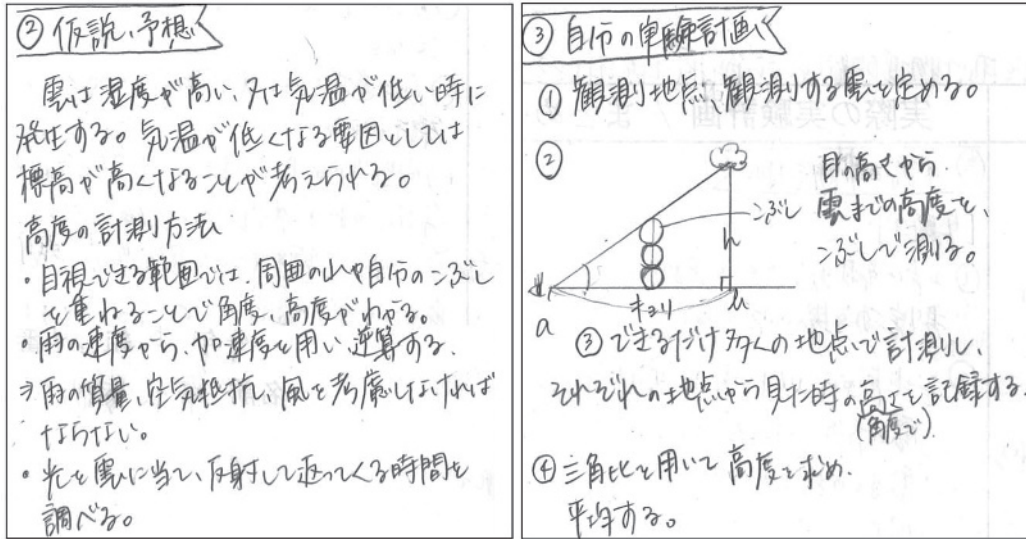 ② 仮説、予想
雲は湿度が高い、又は気温が低い時に
発生する。気温が低くなる要因としては
標高が高くなることが考えられる。
高度の計測方法
・目視できる範囲では、周囲の山や自分のこぶし
を重ねることで角度、高度がわかる。
・雨の速度から、加速度を用い、逆算する。
⇒雨の質量、空気抵抗、風を考慮しなければ
ならない。
・光を雲に当て、反射して返ってくる時間を
調べる。
③ 自分の実験計画
① 観測地点、観測する雲を定める。
②
目の高さから
雲までの高度を、
こぶしで測る。
こぶし
h
キョリ
a
③ できるだけ多くの地点で計測し、
それぞれの地点から見た時の高さを記録する。
(角度で)
④ 三角比を用いて高度を求め、
平均する。